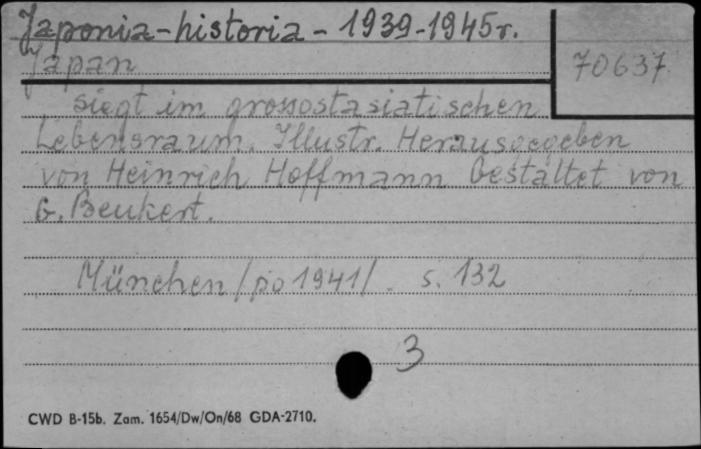 Japonia-historia - 1939-1945r.
Japan
70637
siegt im grossostasiatischen
Lebensraum. Illustr. Herausgegeben
von Heinrich Hoffmann Gestaltet von
G. Beukert.
München /po 1941/. s. 132
3
CWD B-15b. Zam. 1654/Dw/On/68 GDA-2710.